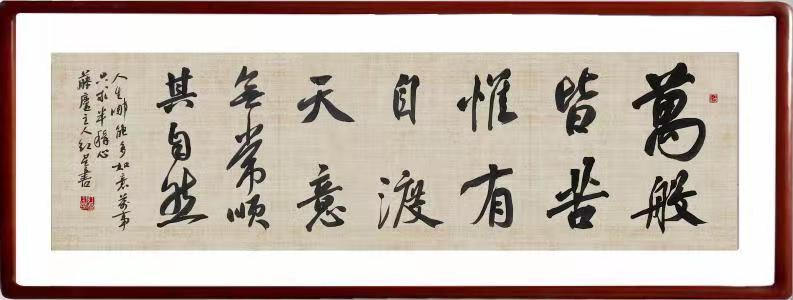 萬般
皆苦
惟有
自渡
天意
無常順
其自然
人生哪能多如意萬事
只求半稱心
主人紅書